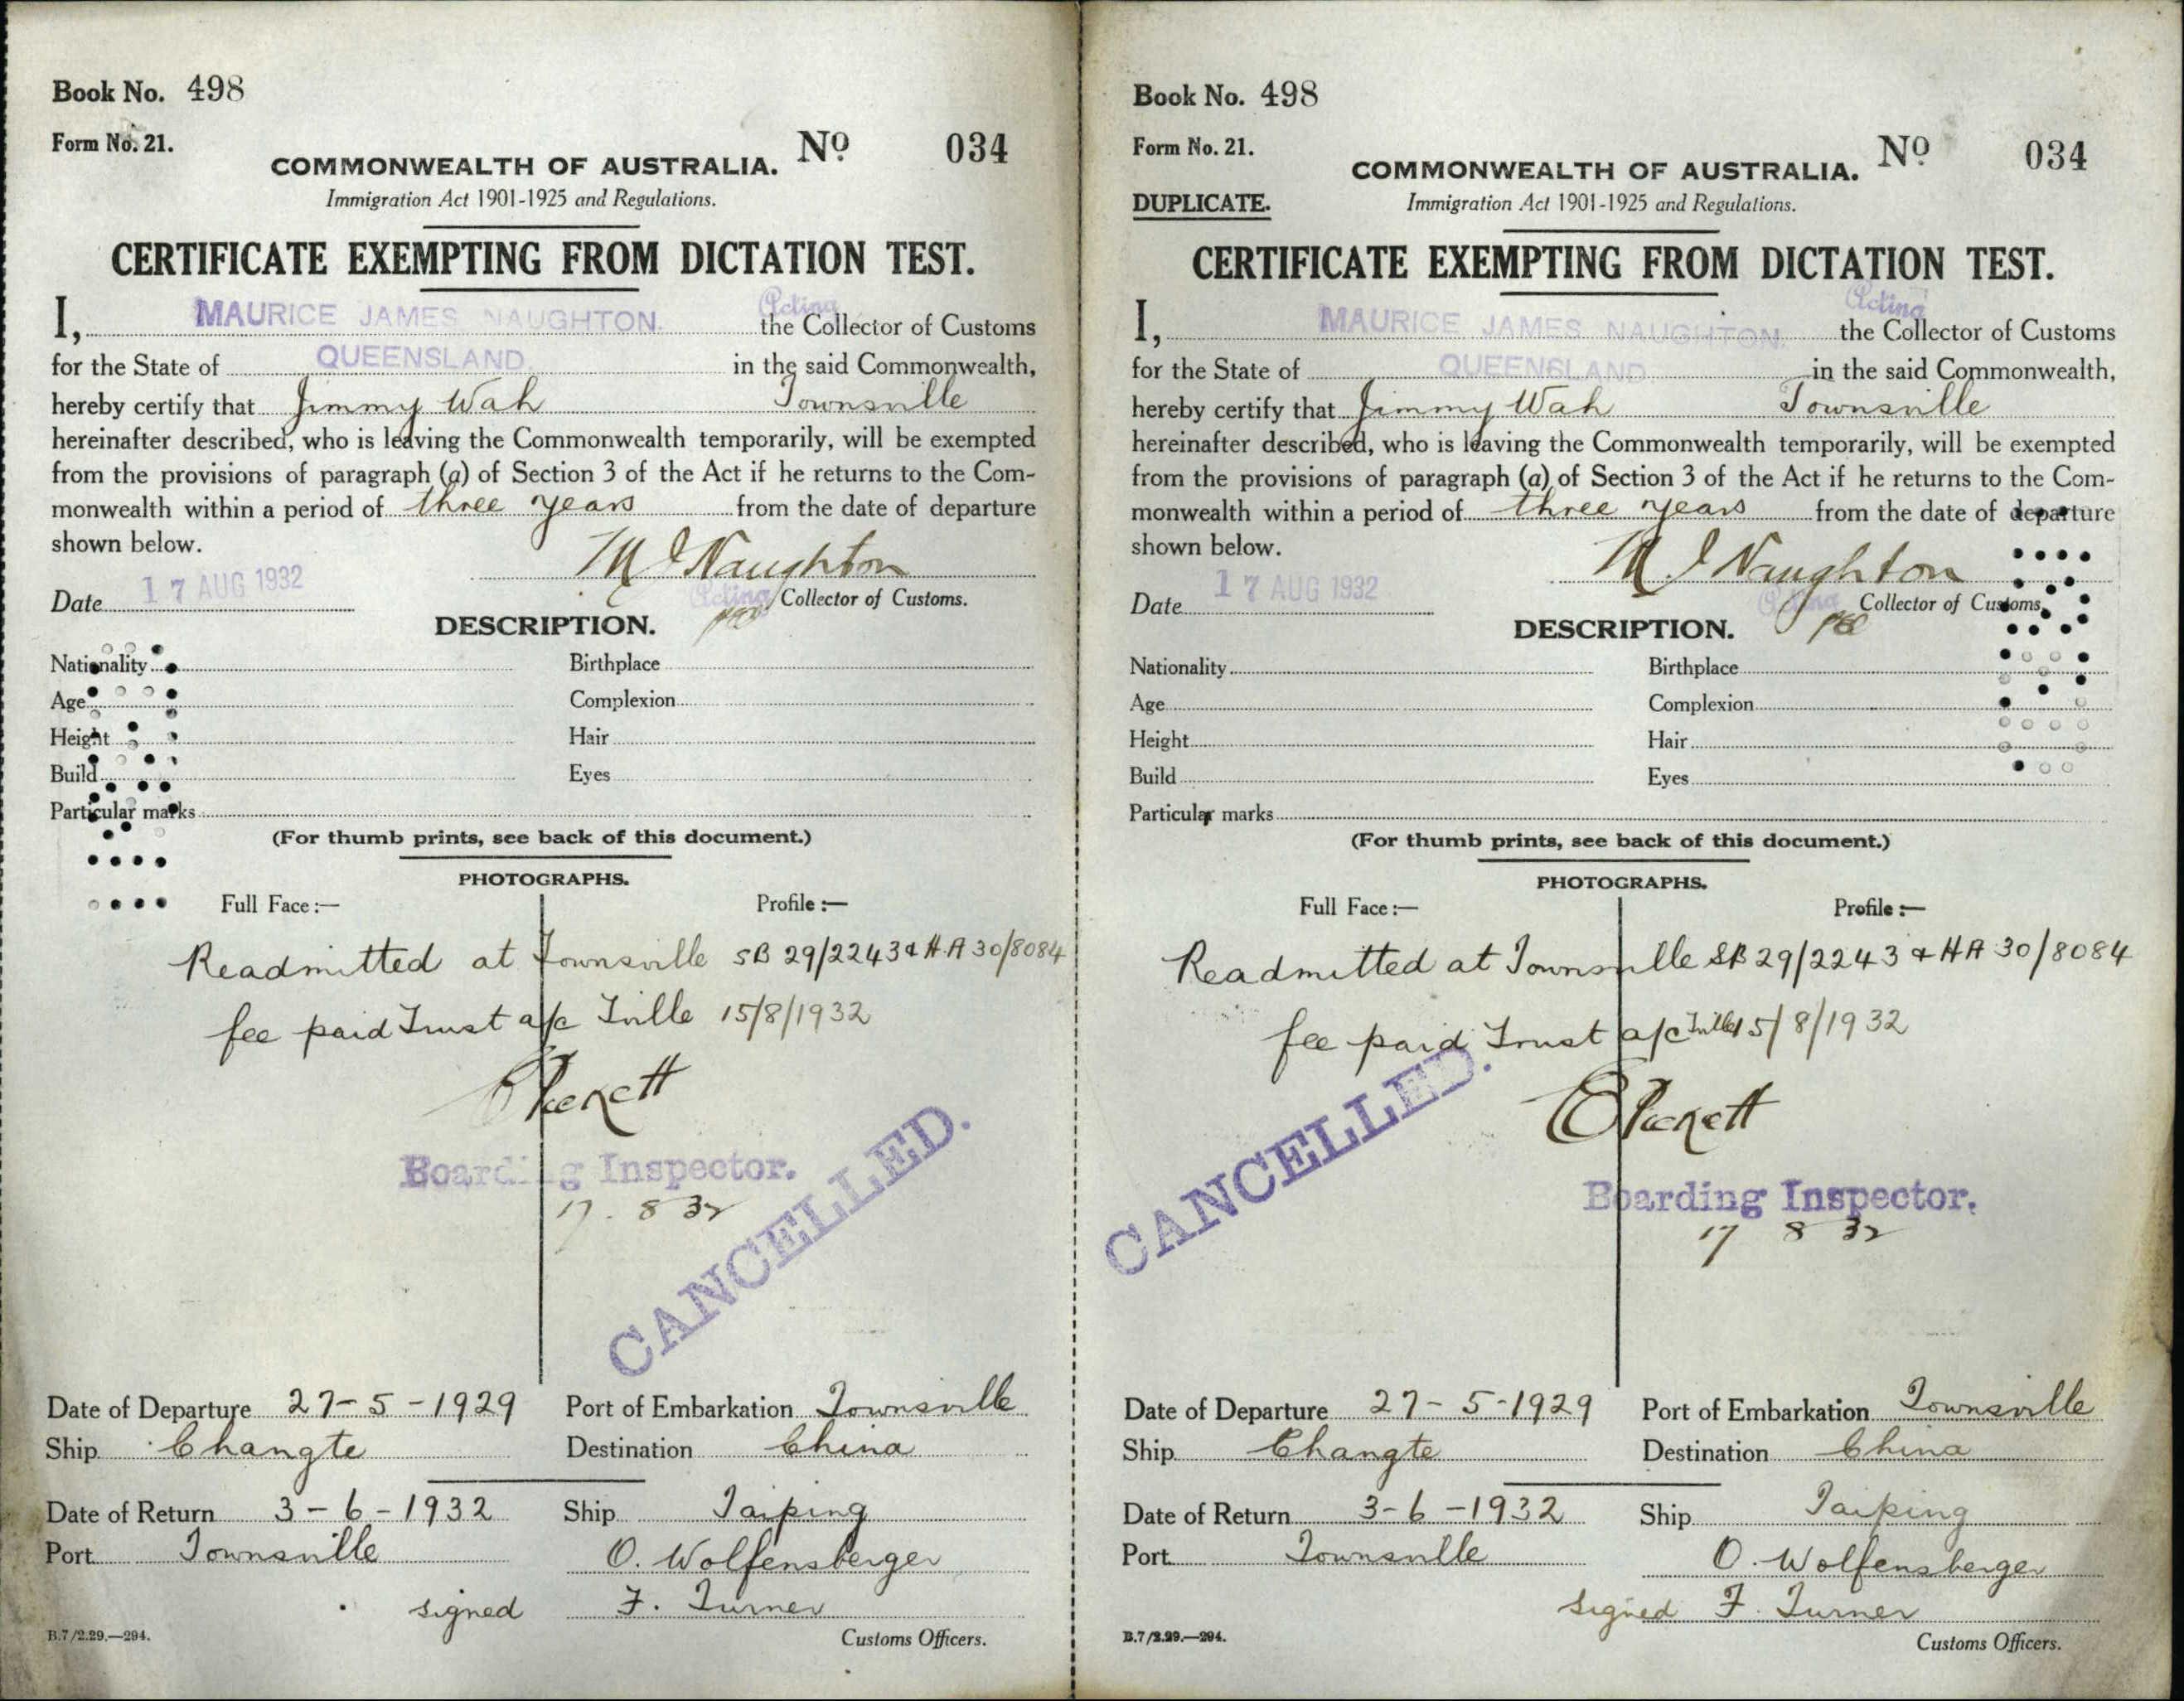 Book No. 498
Form No. 21.
COMMONWEALTH OF AUSTRALIA. No 034
Immigration Act 1901-1925 and Regulations.
CERTIFICATE EXEMPTING FROM DICTATION TEST.
I, MAURICE JAMES NAUGHTON. Acting the Collector of Customs
for the State of QUEENSLAND. in the said Commonwealth,
hereby certify that Jimmy Wah Townsville
hereinafter described, who is leaving the Commonwealth temporarily, will be exempted
from the provisions of paragraph (a) of Section 3 of the Act if he returns to the Com-
monwealth within a period of three years from the date of departure
shown below.
M J Naughton
Date 17 AUG 1932 Acting Collector of Customs.
DESCRIPTION.
Nationality Birthplace
Age Complexion
Height Hair
Build Eyes
Particular marks
(For thumb prints, see back of this document.)
PHOTOGRAPHS.
Full Face:— Profile:—
Readmitted at Townsville SB 29/2243 & HA 30/8084
fee paid Trust a/c Tville 15/8/1932
Boarding Inspector.
17. 8 32
CANCELLED.
Date of Departure 27-5-1929 Port of Embarkation Townsville
Ship Changte Destination China
Date of Return 3-6-1932 Ship Taiping
Port Townsville O. Wolfensberger
signed F. Turner
B.7/2.29.—294. Customs Officers.
Book No. 498
Form No. 21.
COMMONWEALTH OF AUSTRALIA. No 034
DUPLICATE. Immigration Act 1901-1925 and Regulations.
CERTIFICATE EXEMPTING FROM DICTATION TEST.
I, MAURICE JAMES NAUGHTON. Acting the Collector of Customs
for the State of QUEENSLAND in the said Commonwealth,
hereby certify that Jimmy Wah Townsville
hereinafter described, who is leaving the Commonwealth temporarily, will be exempted
from the provisions of paragraph (a) of Section 3 of the Act if he returns to the Com-
monwealth within a period of three years from the date of departure
shown below.
M J Naughton
Date 17 AUG 1932 Acting Collector of Customs.
DESCRIPTION.
Nationality Birthplace
Age Complexion
Height Hair
Build Eyes
Particular marks
(For thumb prints, see back of this document.)
PHOTOGRAPHS.
Full Face:— Profile:—
Readmitted at Townsville SB 29/2243 & HA 30/8084
fee paid Trust a/c Tville 15/8/1932
CANCELLED.
Boarding Inspector.
17 8 32
Date of Departure 27-5-1929 Port of Embarkation Townsville
Ship Changte Destination China
Date of Return 3-6-1932 Ship Taiping
Port Townsville O. Wolfensberger
signed F. Turner
B.7/2.29.—294. Customs Officers.